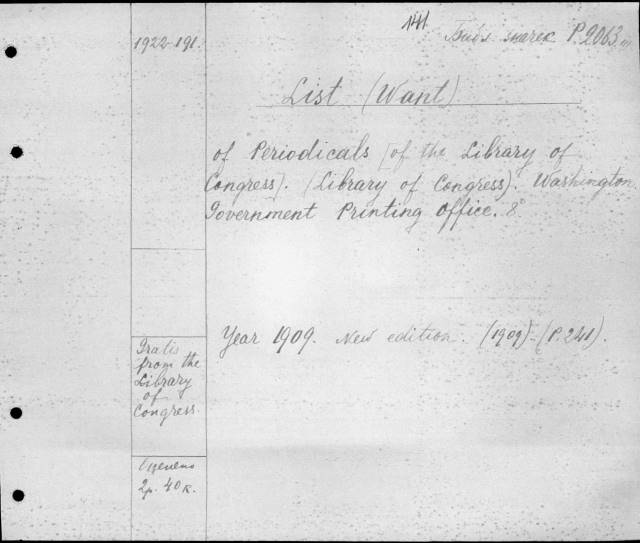 1922-191.
P. 2063
List (Want)
of Periodicals [of the Library of
Congress]. (Library of Congress). Washington
Government Printing Office. 8°
Year 1909. New edition. (1909). (P. 241).
Gratis
from the
Library
of
Congress.
2р. 40к.